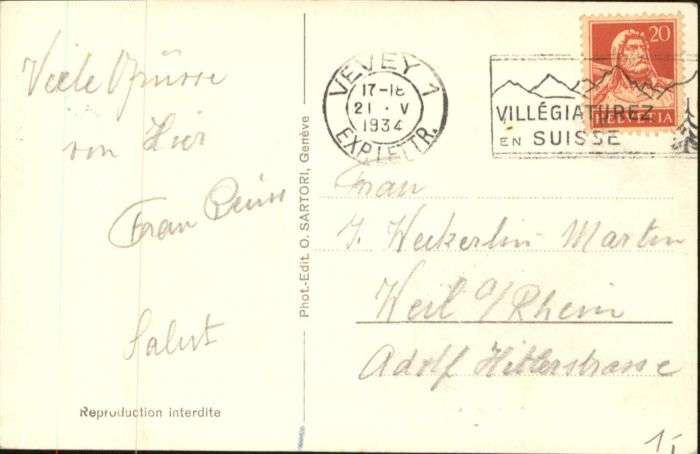 Viele Grüsse
von Hier
Frau
Salut
Reproduction interdite
Phot.-Edit. O. SARTORI, Genève
VEVEY 1
17-18
21 · V
1934
EXP. LETTR.
VILLÉGIATUREZ
EN SUISSE
20
HELVETIA
Frau
J. Weckerlin Martin
Weil a/Rhein
Adolf Hitlerstrasse